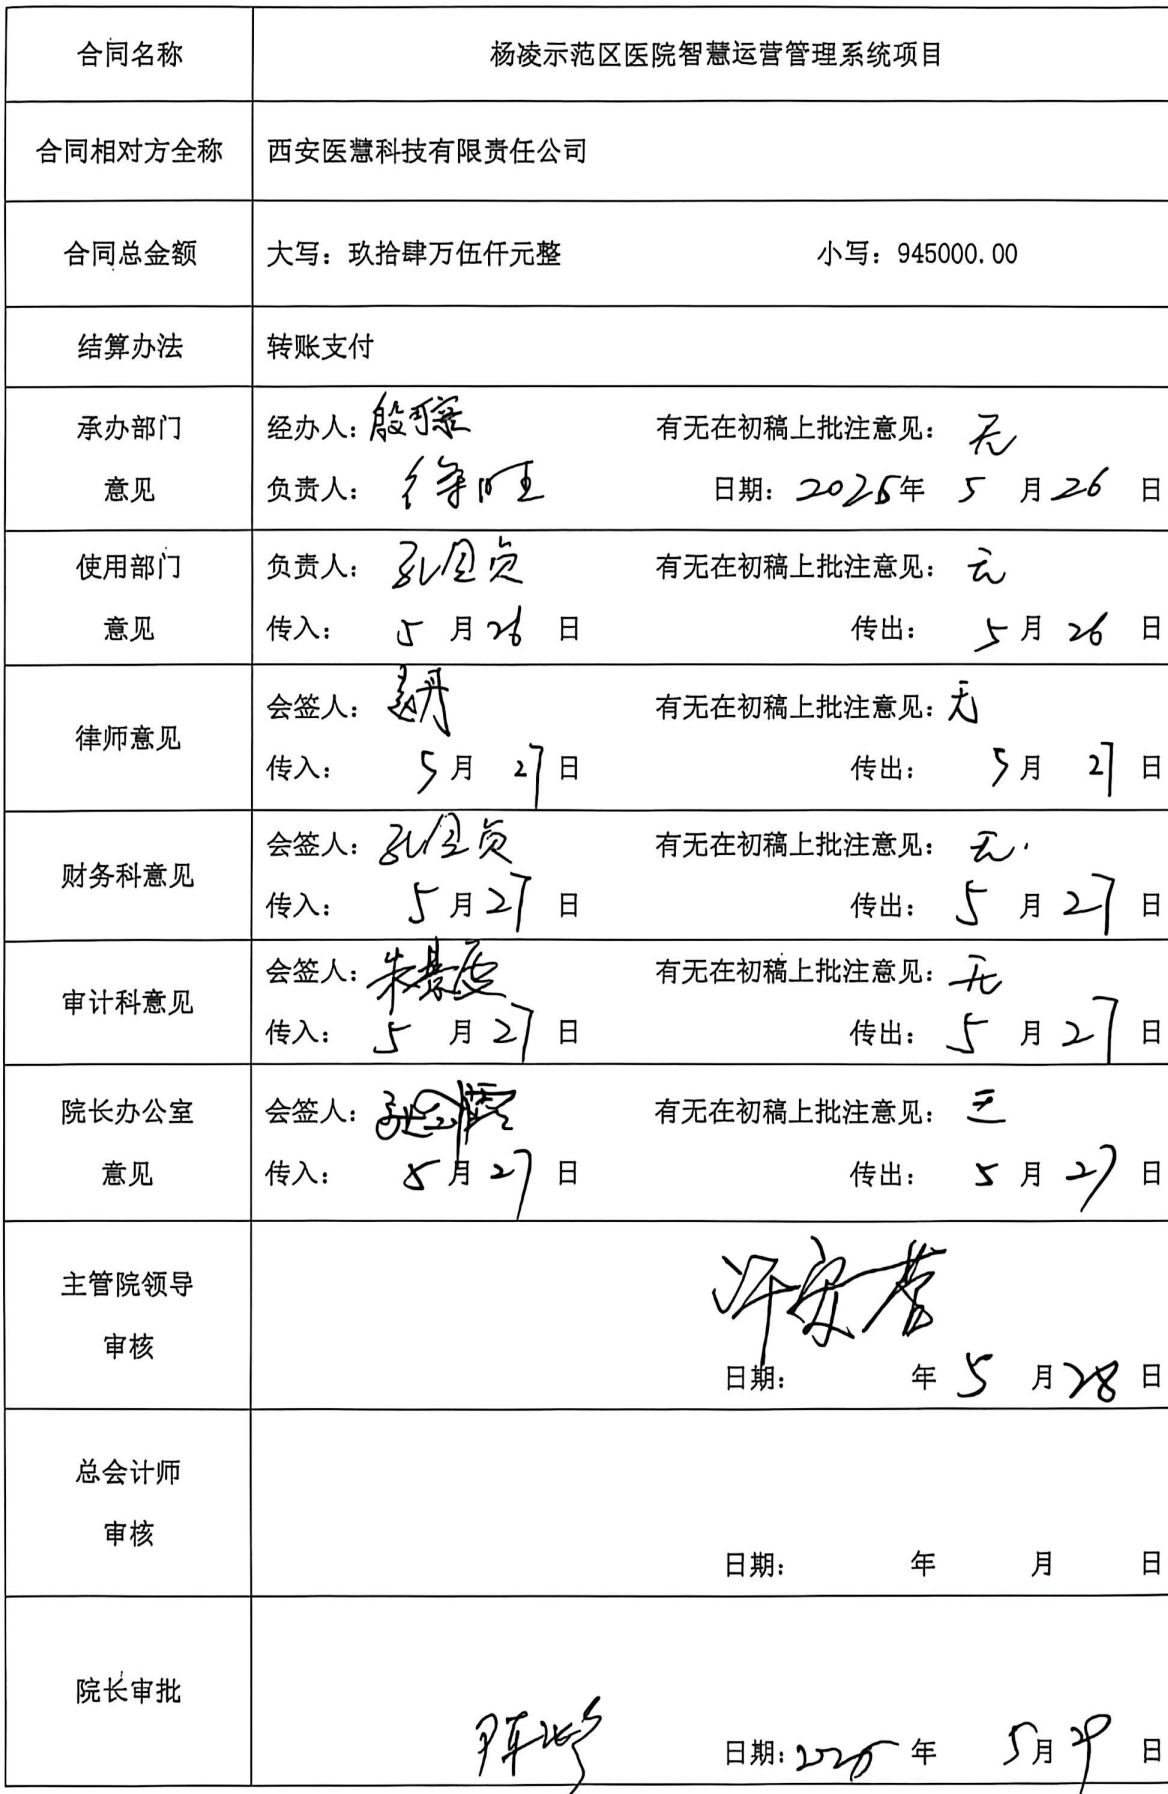 合同名称 杨凌示范区医院智慧运营管理系统项目
合同相对方全称 西安医慧科技有限责任公司
合同总金额 大写：玖拾肆万伍仟元整 小写：945000.00
结算办法 转账支付
承办部门 经办人：殷 有无在初稿上批注意见：无
意见 负责人：徐 旺 日期：2025年 5 月 26 日
使用部门 负责人：孔 有无在初稿上批注意见：无
意见 传入： 5 月 26 日 传出： 5 月 26 日
律师意见
会签人：赵丹 有无在初稿上批注意见：无
传入： 5 月 27 日 传出： 5 月 27 日
财务科意见
会签人：孔 有无在初稿上批注意见：无
传入： 5 月 27 日 传出： 5 月 27 日
审计科意见
会签人：朱 有无在初稿上批注意见：无
传入： 5 月 27 日 传出： 5 月 27 日
院长办公室 会签人： 有无在初稿上批注意见：无
意见 传入： 5 月 27 日 传出： 5 月 27 日
主管院领导
审核
许安营
日期： 年 5 月 28 日
总会计师
审核
日期： 年 月 日
院长审批
日期：2025 年 5 月 29 日